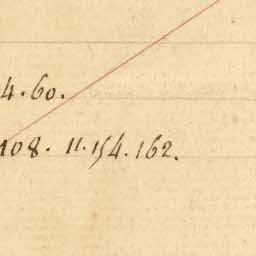 4. 60.
108. 11. 154. 162.